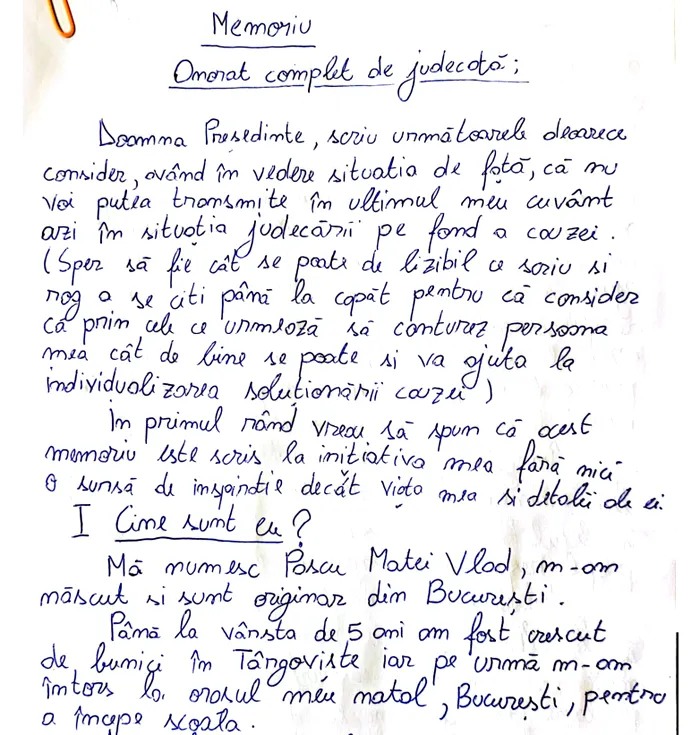 Memoriu
Onorat complet de judecată;
Doamna Presedinte, scriu următoarele deoarece
consider, având în vedere situatia de fată, că nu
voi putea transmite în ultimul meu cuvânt
azi în situatia judecării pe fond a cauzei.
(Sper să fie cât se poate de lizibil ce scriu si
rog a se citi până la capăt pentru că consider
că prin cele ce urmează să conturez persoana
mea cât de bine se poate si va ajuta la
individualizarea soluționării cauzei)
În primul rând vreau să spun că acest
memoriu este scris la initiativa mea fără nici
o sursă de inspiratie decât viata mea si detalii ale ei.
I Cine sunt eu?
Mă numesc Pascu Matei Vlad, m-am
născut si sunt originar din București.
Până la vârsta de 5 ani am fost crescut
de bunici în Târgoviste iar pe urmă m-am
întors la orasul meu natal, București, pentru
a începe scoala.